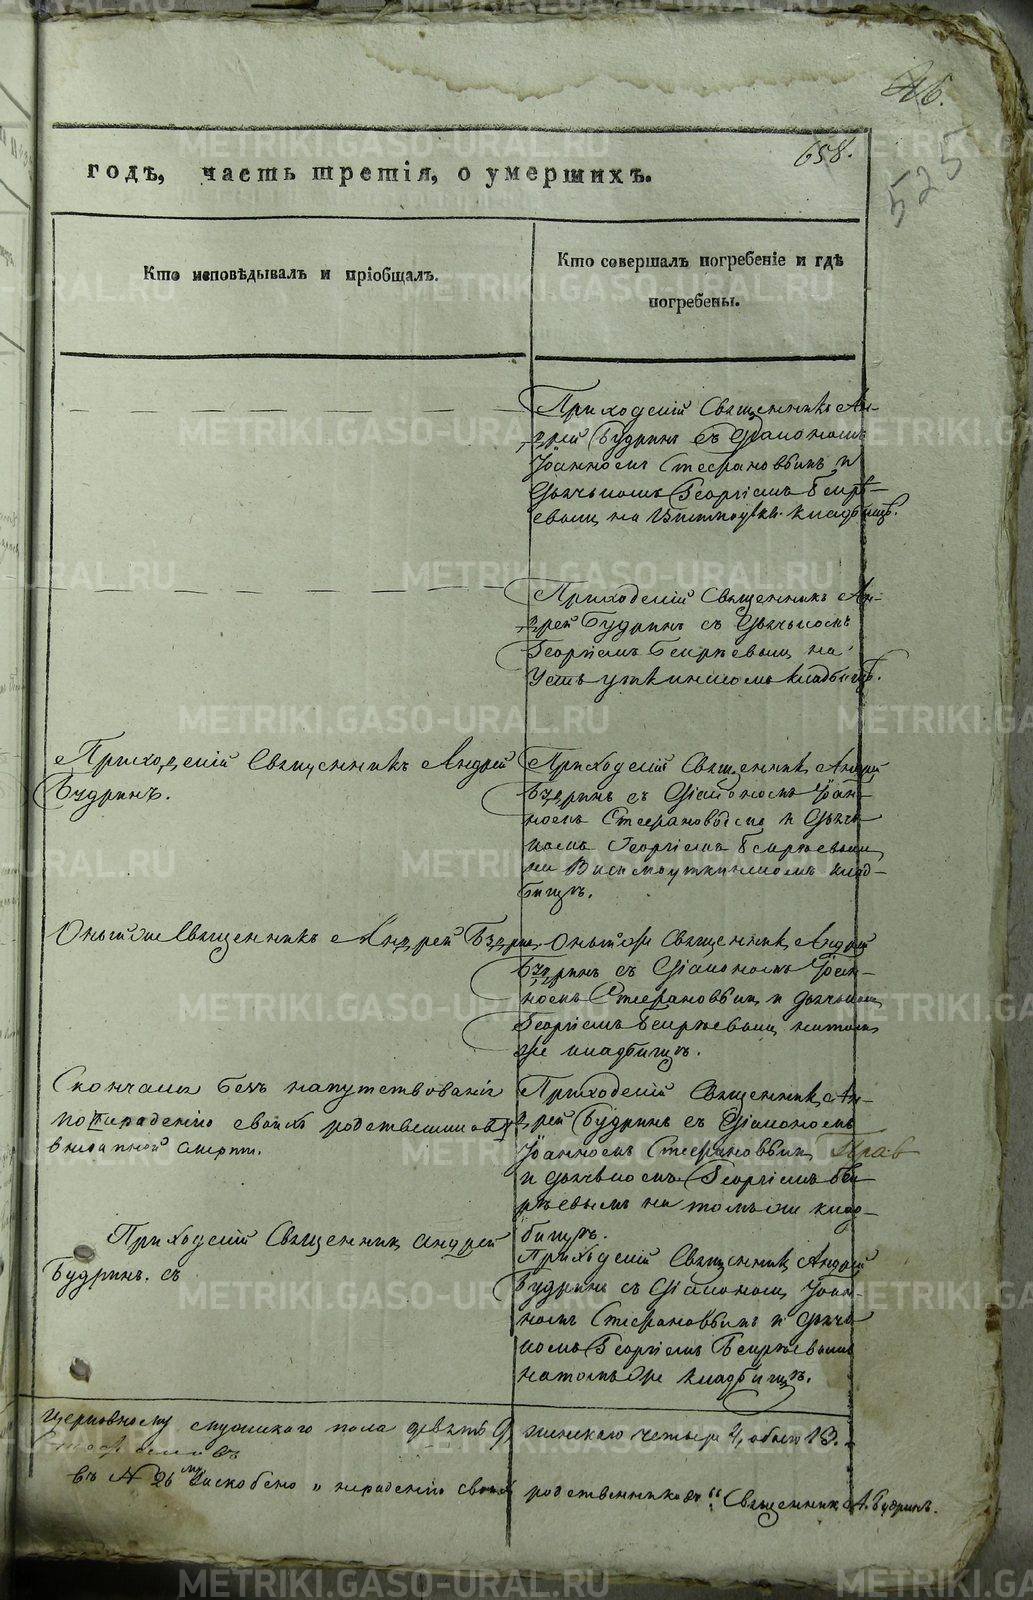 658.
525
годѣ, часть третія, о умершихъ.
Кто исповѣдывалъ и пріобщалъ.
Кто совершалъ погребеніе и гдѣ
погребены.
Приходскій Священникъ Ан-
дрей Будринъ съ Діакономъ
Іоанномъ Стефановымъ и
Дьячькомъ Георгіемъ
на кладбищѣ.
Приходскій Священникъ Ан-
дрей Будринъ съ Дьячькомъ
Георгіемъ на
Усть уткинскомъ кладбищѣ.
Приходскій Священникъ Андрей
Будринъ.
Приходскій Священникъ Андрей
Будринъ съ Діакономъ Іоан-
номъ Стефановымъ и Дьячь-
комъ Георгіемъ
на Висимоуткинскомъ клад-
бищѣ.
Онытже Священникъ Андрей Будринъ
Онытже Священникъ Андрей
Будринъ съ Діакономъ Іоан-
номъ Стефановымъ и дьячькомъ
Георгіемъ на томъ
же кладбищѣ.
Скончался безъ напутствованія
по нерадению своихъ родственниковъ
внезапной смерти.
Приходскій Священникъ Ан-
дрей Будринъ съ Діакономъ
Іоанномъ Стефановымъ
и дьячькомъ Георгіемъ
на томъ же клад-
бищѣ.
Приходскій Священникъ Андрей
Будринъ. съ
Приходскій Священникъ Андрей
Будринъ съ Діакономъ Іоан-
номъ Стефановымъ и Дьячь-
комъ Георгіемъ
на томъ же кладбищѣ.
мужскаго пола девять 9, женскаго четыре 4, обоего 13.
въ № 26 выскоблено „ нерадению своихъ родственниковъ “ Священникъ А. Будринъ.
METRIKI.GASO-URAL.RU